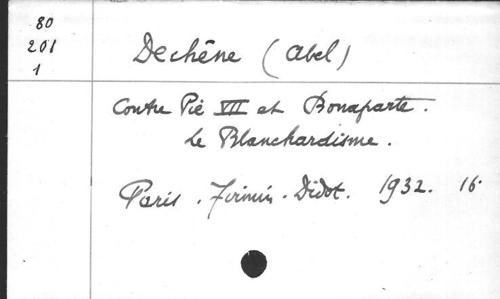 80
201
1
Dechêne (Abel)
Contre Pie VII et Bonaparte.
Le Blanchardisme.
Paris. Firmin-Didot. 1932. 16°